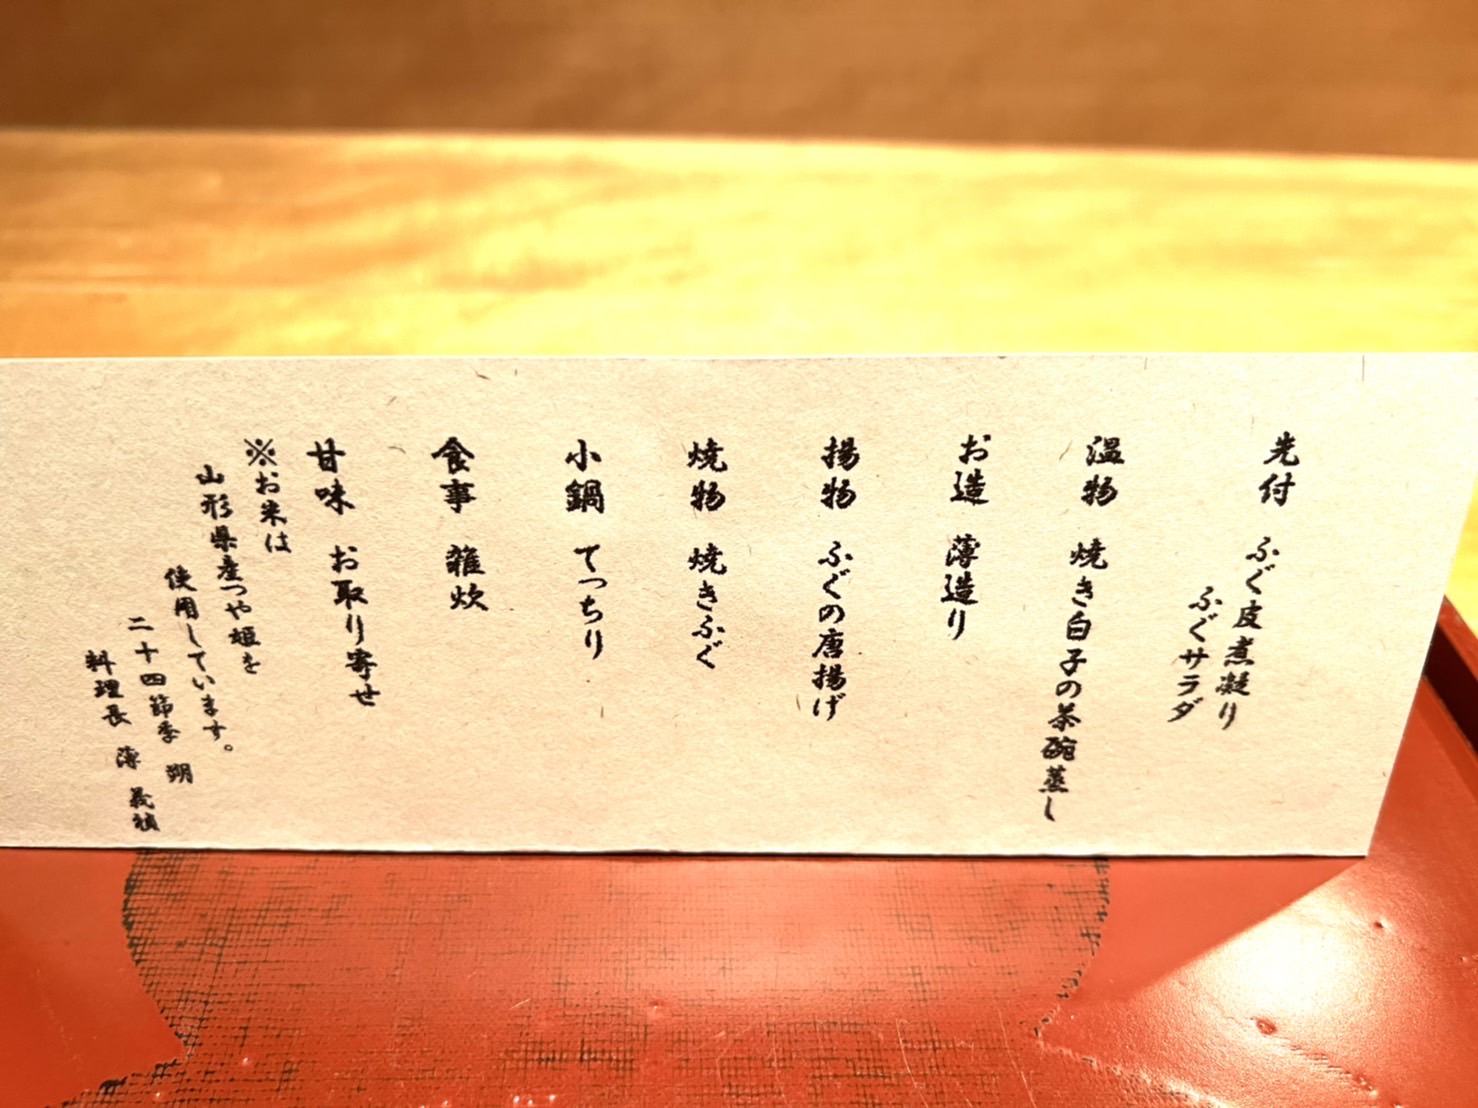 先付 ふぐ皮煮凝り
ふぐサラダ
温物 焼き白子の茶碗蒸し
お造 薄造り
揚物 ふぐの唐揚げ
焼物 焼きふぐ
小鍋 てっちり
食事 雑炊
甘味 お取り寄せ
※お米は
山形県産つや姫を
使用しています。
二十四節季 朔
料理長 薄 義禎